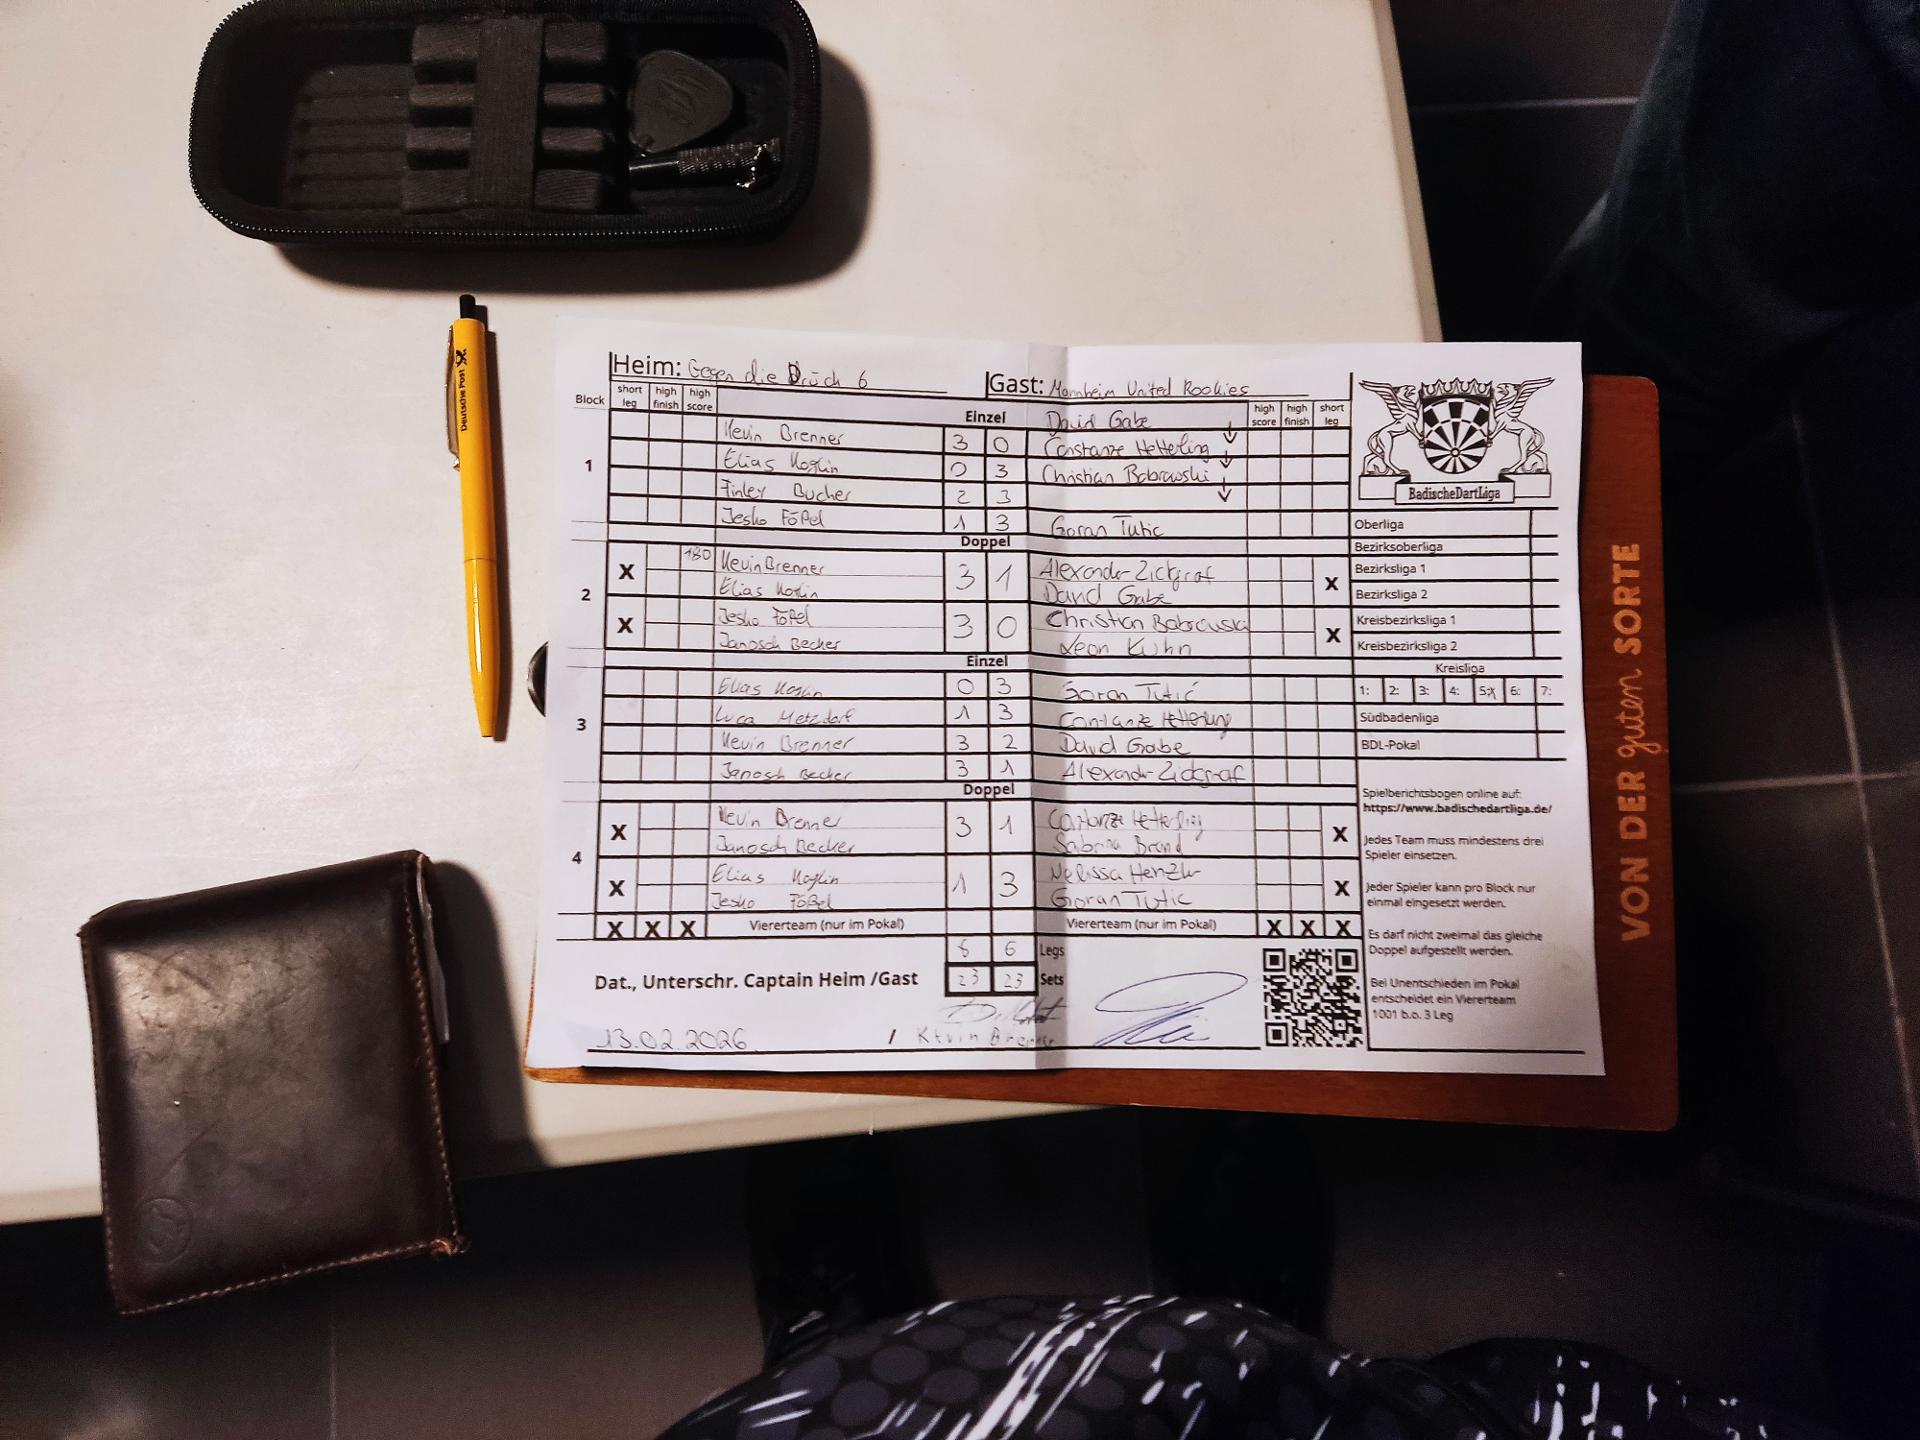 Deutsche Post
Heim: Gegen die Drück 6
Gast: Mannheim United Rookies
Block short leg high finish high score
Einzel
high score high finish short leg
David Gabe
1
Kevin Brenner 3 0 Constanze Hetterling
Elias Koglin 0 3 Christian Bobrowski
Finley Bucher 2 3
Jesko Fößel 1 3 Goran Tutic
Doppel
2
X 180 Kevin Brenner 3 1 Alexander Zickgraf X
Elias Koglin David Gabe
X Jesko Fößel 3 0 Christian Bobrowski X
Janosch Becker Leon Kuhn
Einzel
3
Elias Koglin 0 3 Goran Tutić
Luca Metzdorf 1 3 Constanze Hetterling
Kevin Brenner 3 2 David Gabe
Janosch Becker 3 1 Alexander Zickgraf
Doppel
4
X Kevin Brenner 3 1 Constanze Hetterling X
Janosch Becker Sabrina Brand
X Elias Koglin 1 3 Melissa Henzler X
Jesko Fößel Goran Tutic
X X X Viererteam (nur im Pokal) Viererteam (nur im Pokal) X X X
6 6 Legs
Dat., Unterschr. Captain Heim /Gast 23 23 Sets
13.02.2026 / Kevin Brenner
BadischeDartLiga
Oberliga
Bezirksoberliga
Bezirksliga 1
Bezirksliga 2
Kreisbezirksliga 1
Kreisbezirksliga 2
Kreisliga
1: 2: 3: 4: 5:X 6: 7:
Südbadenliga
BDL-Pokal
Spielberichtsbogen online auf:
https://www.badischedartliga.de/
Jedes Team muss mindestens drei
Spieler einsetzen.
Jeder Spieler kann pro Block nur
einmal eingesetzt werden.
Es darf nicht zweimal das gleiche
Doppel aufgestellt werden.
Bei Unentschieden im Pokal
entscheidet ein Viererteam
1001 b.o. 3 Leg
VON DER guten SORTE